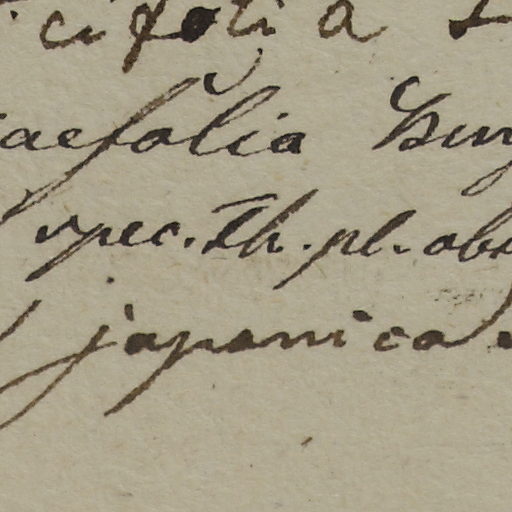 cifolia
aefolia Bung
spec. Th. pl. obs
japonica